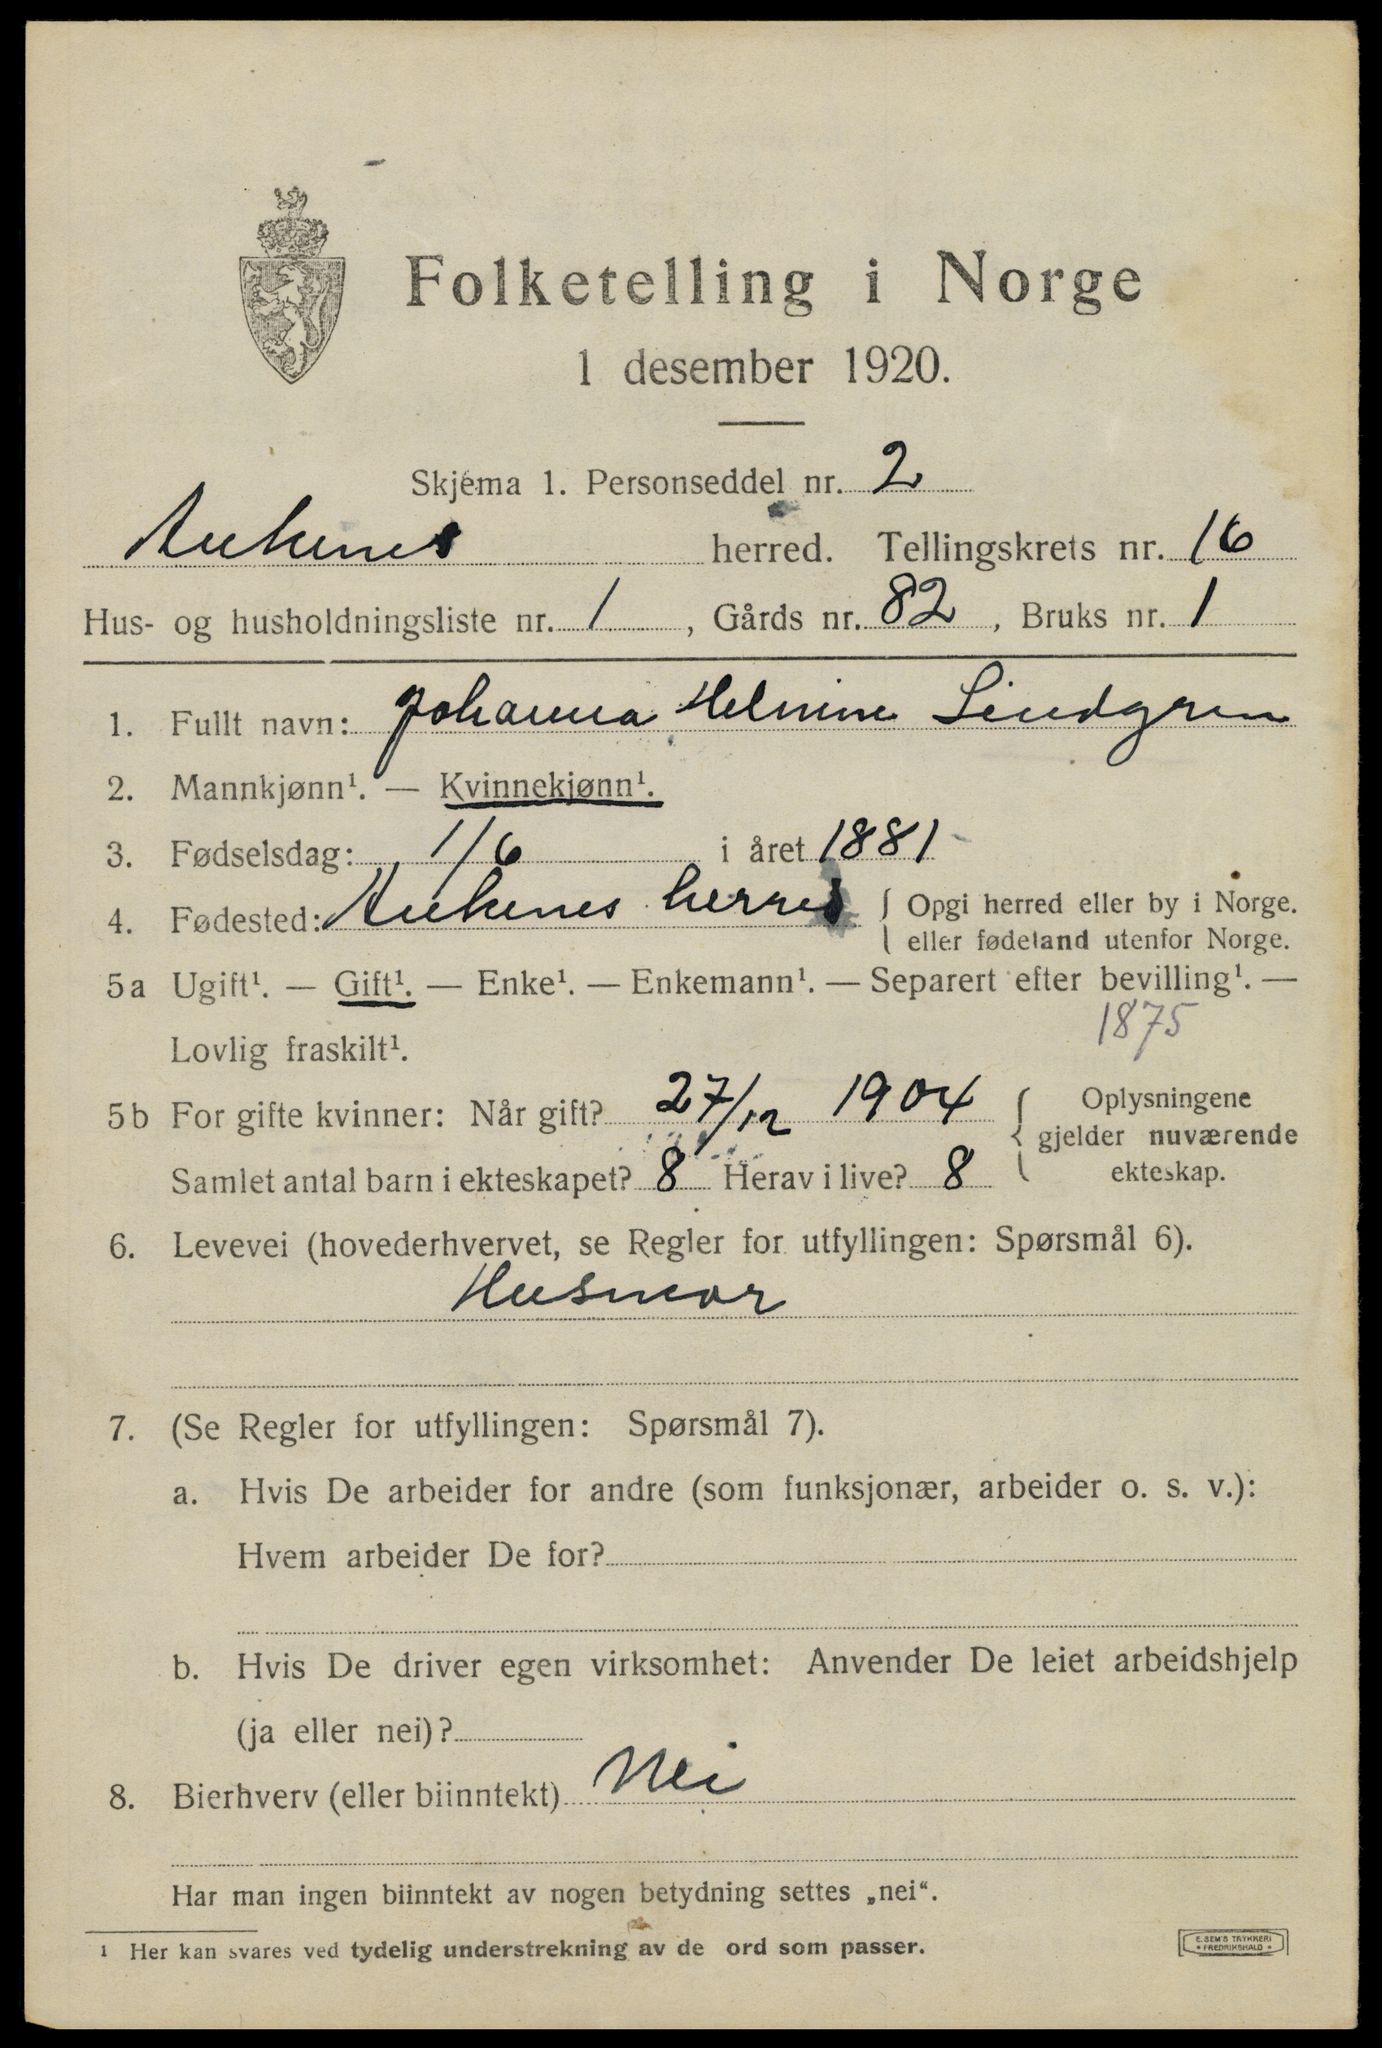 Folketelling i Norge
1 desember 1920.
Skjema 1. Personseddel nr. 2
Ankenes herred. Tellingskrets nr. 16
Hus- og husholdningsliste nr. 1, Gårds nr. 82, Bruks nr. 1
1. Fullt navn: Johanna Helmine Lindgren
2. Mannkjønn¹. — Kvinnekjønn¹.
3. Fødselsdag: 1/6 i året 1881
4. Fødested: Ankenes herred { Opgi herred eller by i Norge.
eller fødeland utenfor Norge.
5a Ugift¹. — Gift¹. — Enke¹. — Enkemann¹. — Separert efter bevilling¹. —
1875
Lovlig fraskilt¹.
5b For gifte kvinner: Når gift? 27/12 1904 { Oplysningene
gjelder nuværende
Samlet antal barn i ekteskapet? 8 Herav i live? 8 ekteskap.
6. Levevei (hovederhvervet, se Regler for utfyllingen: Spørsmål 6).
Husmor
7. (Se Regler for utfyllingen: Spørsmål 7).
a. Hvis De arbeider for andre (som funksjonær, arbeider o. s. v.):
Hvem arbeider De for?
b. Hvis De driver egen virksomhet: Anvender De leiet arbeidshjelp
(ja eller nei)?
8. Bierhverv (eller biinntekt) Nei
Har man ingen biinntekt av nogen betydning settes „nei“.
¹ Her kan svares ved tydelig understrekning av de ord som passer.
E. SEM'S TRYKKERI
* FREDRIKSHALD *